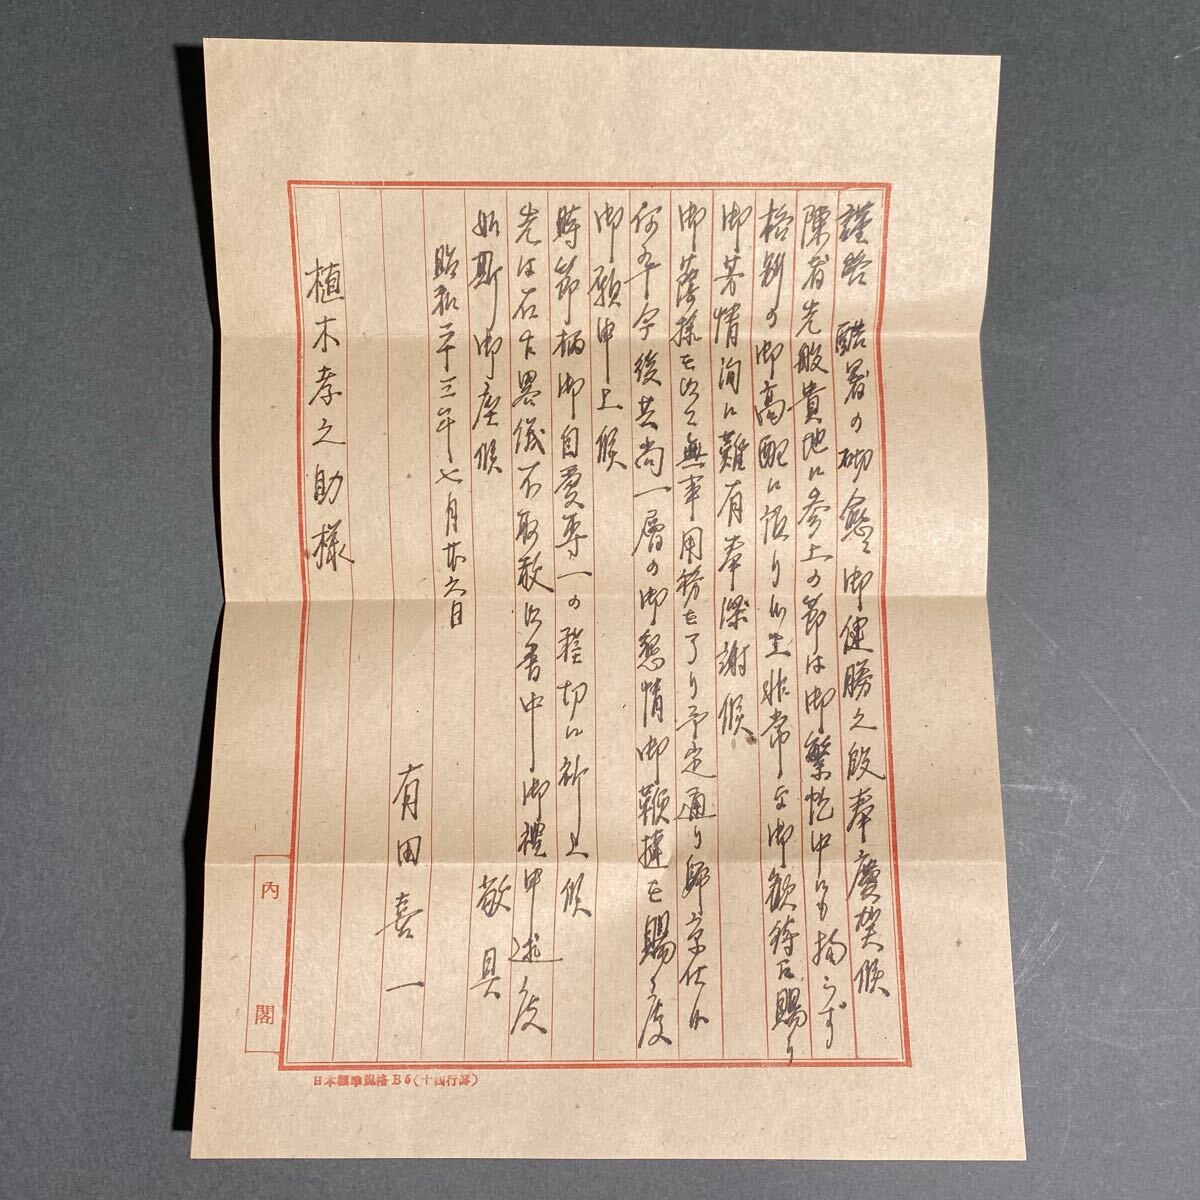 謹啓 酷暑の砌愈々御健勝之段奉慶賀候
陳者先般貴地に参上の節は御繁忙中にも拘らず
格別の御高配に預り加之非常な御歓待に賜り
御芳情洵に難有奉深謝候
御蔭様を以て無事用務を了り予定通り帰京仕り
何卒今後共尚一層の御懇情御鞭撻を賜り度
御願申上候
時節柄御自愛専一の程切に祈上候
先は右乍畧儀不取敢以書中御禮申述度
如斯御座候 敬具
昭和二十三年七月廿六日
有田喜一
植木孝之助様
内閣
日本標準規格B5(十四行罫)